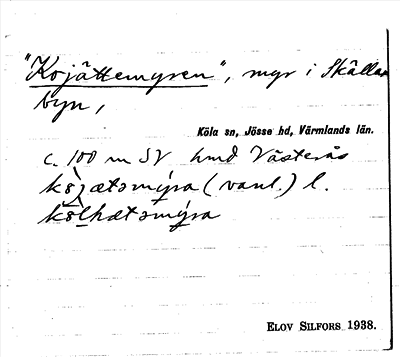 "Kojättemyren", myr i Skålla-
byn,
Köla sn, Jösse hd, Värmlands län.
c. 100 m SV hmd Västerås
kö̀jætəmýra (vanl.) l.
kö̀lhætəmýra
ELOV SILFORS 1938.